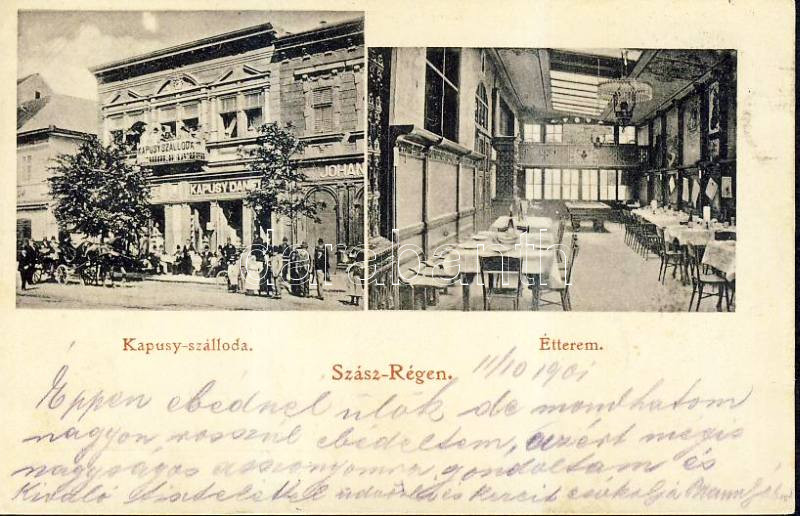 KAPUSY SZÁLLODA
KAPUSY DANI
JOHAN
darabanth
Kapusy-szálloda.
Étterem.
Szász-Régen.
11/10 1901
Éppen ebédnél ülök de mondhatom
nagyon rosszúl ebédeltem, azért mégis
nagyságos asszonyomra gondoltam és
Kiváló tisztelettel üdvözli és kezeit csókolja